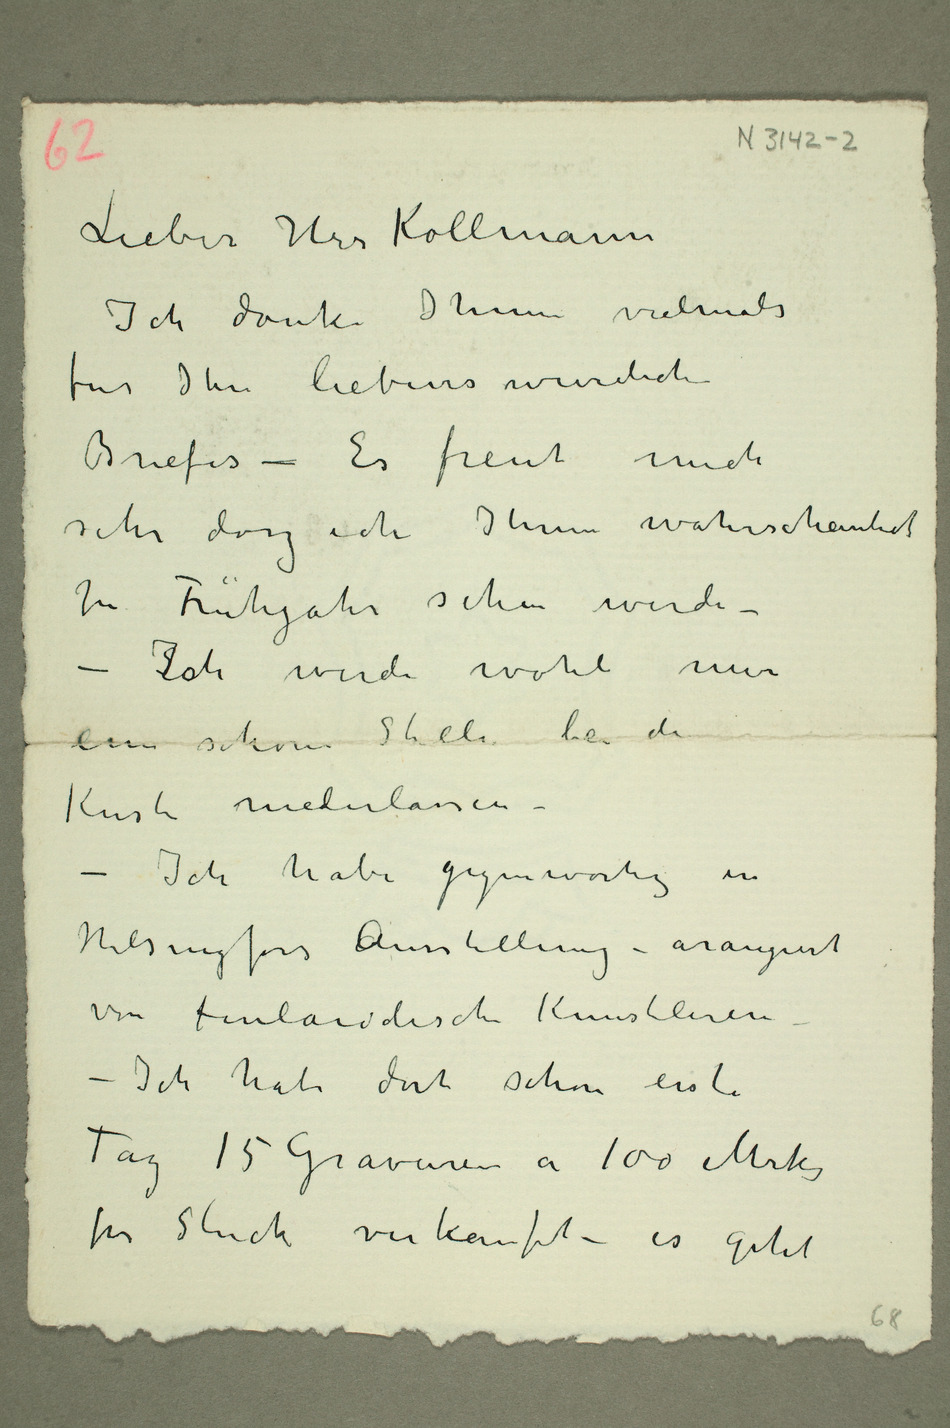 62
N 3142-2
Lieber Herr Kollmann
Ich danke Ihnen vielmals
für Ihre liebenswürdiche
Briefes – Es freut mich
sehr dasz ich Ihnen wahrscheinlich
Frühjahr sehen werde –
– Ich werde wohl mir
eine schöne Stelle bei de
Küste niederlassen –
– Ich habe gegenwärtig in
Helsingfors Ausstellung – arangiert
von finländische Künstleren –
– Ich habe dort schon erste
Tag 15 Gravuren a 100 Mrk
für Stück verkauft – es gehet
68